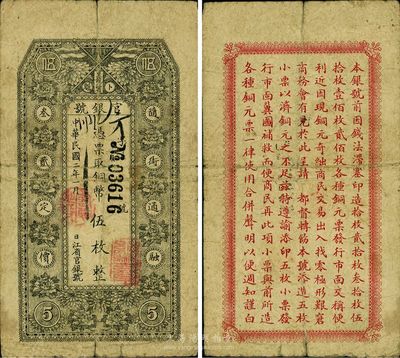 官銀號
No 03616
憑票取銅幣伍枚整
中華民國二年 月 日江省官銀號
隨街通融
叁貳定價
5
5
本銀號前因錢法滯塞印造拾枚貳拾枚叁拾枚伍
拾枚壹佰枚貳佰枚各種銅元票發行市面交稱便
利近因現銅元奇絀商民交易出入找零極形艱窘
商務會有見於此呈請 都督轉飭本號添造五枚
小票以濟銅元之不足茲特遵諭添印五枚小票發
行市面冀圖補救而便商民再此項小票與前所造
各種銅元票一律使用合併聲明以便週知謹白